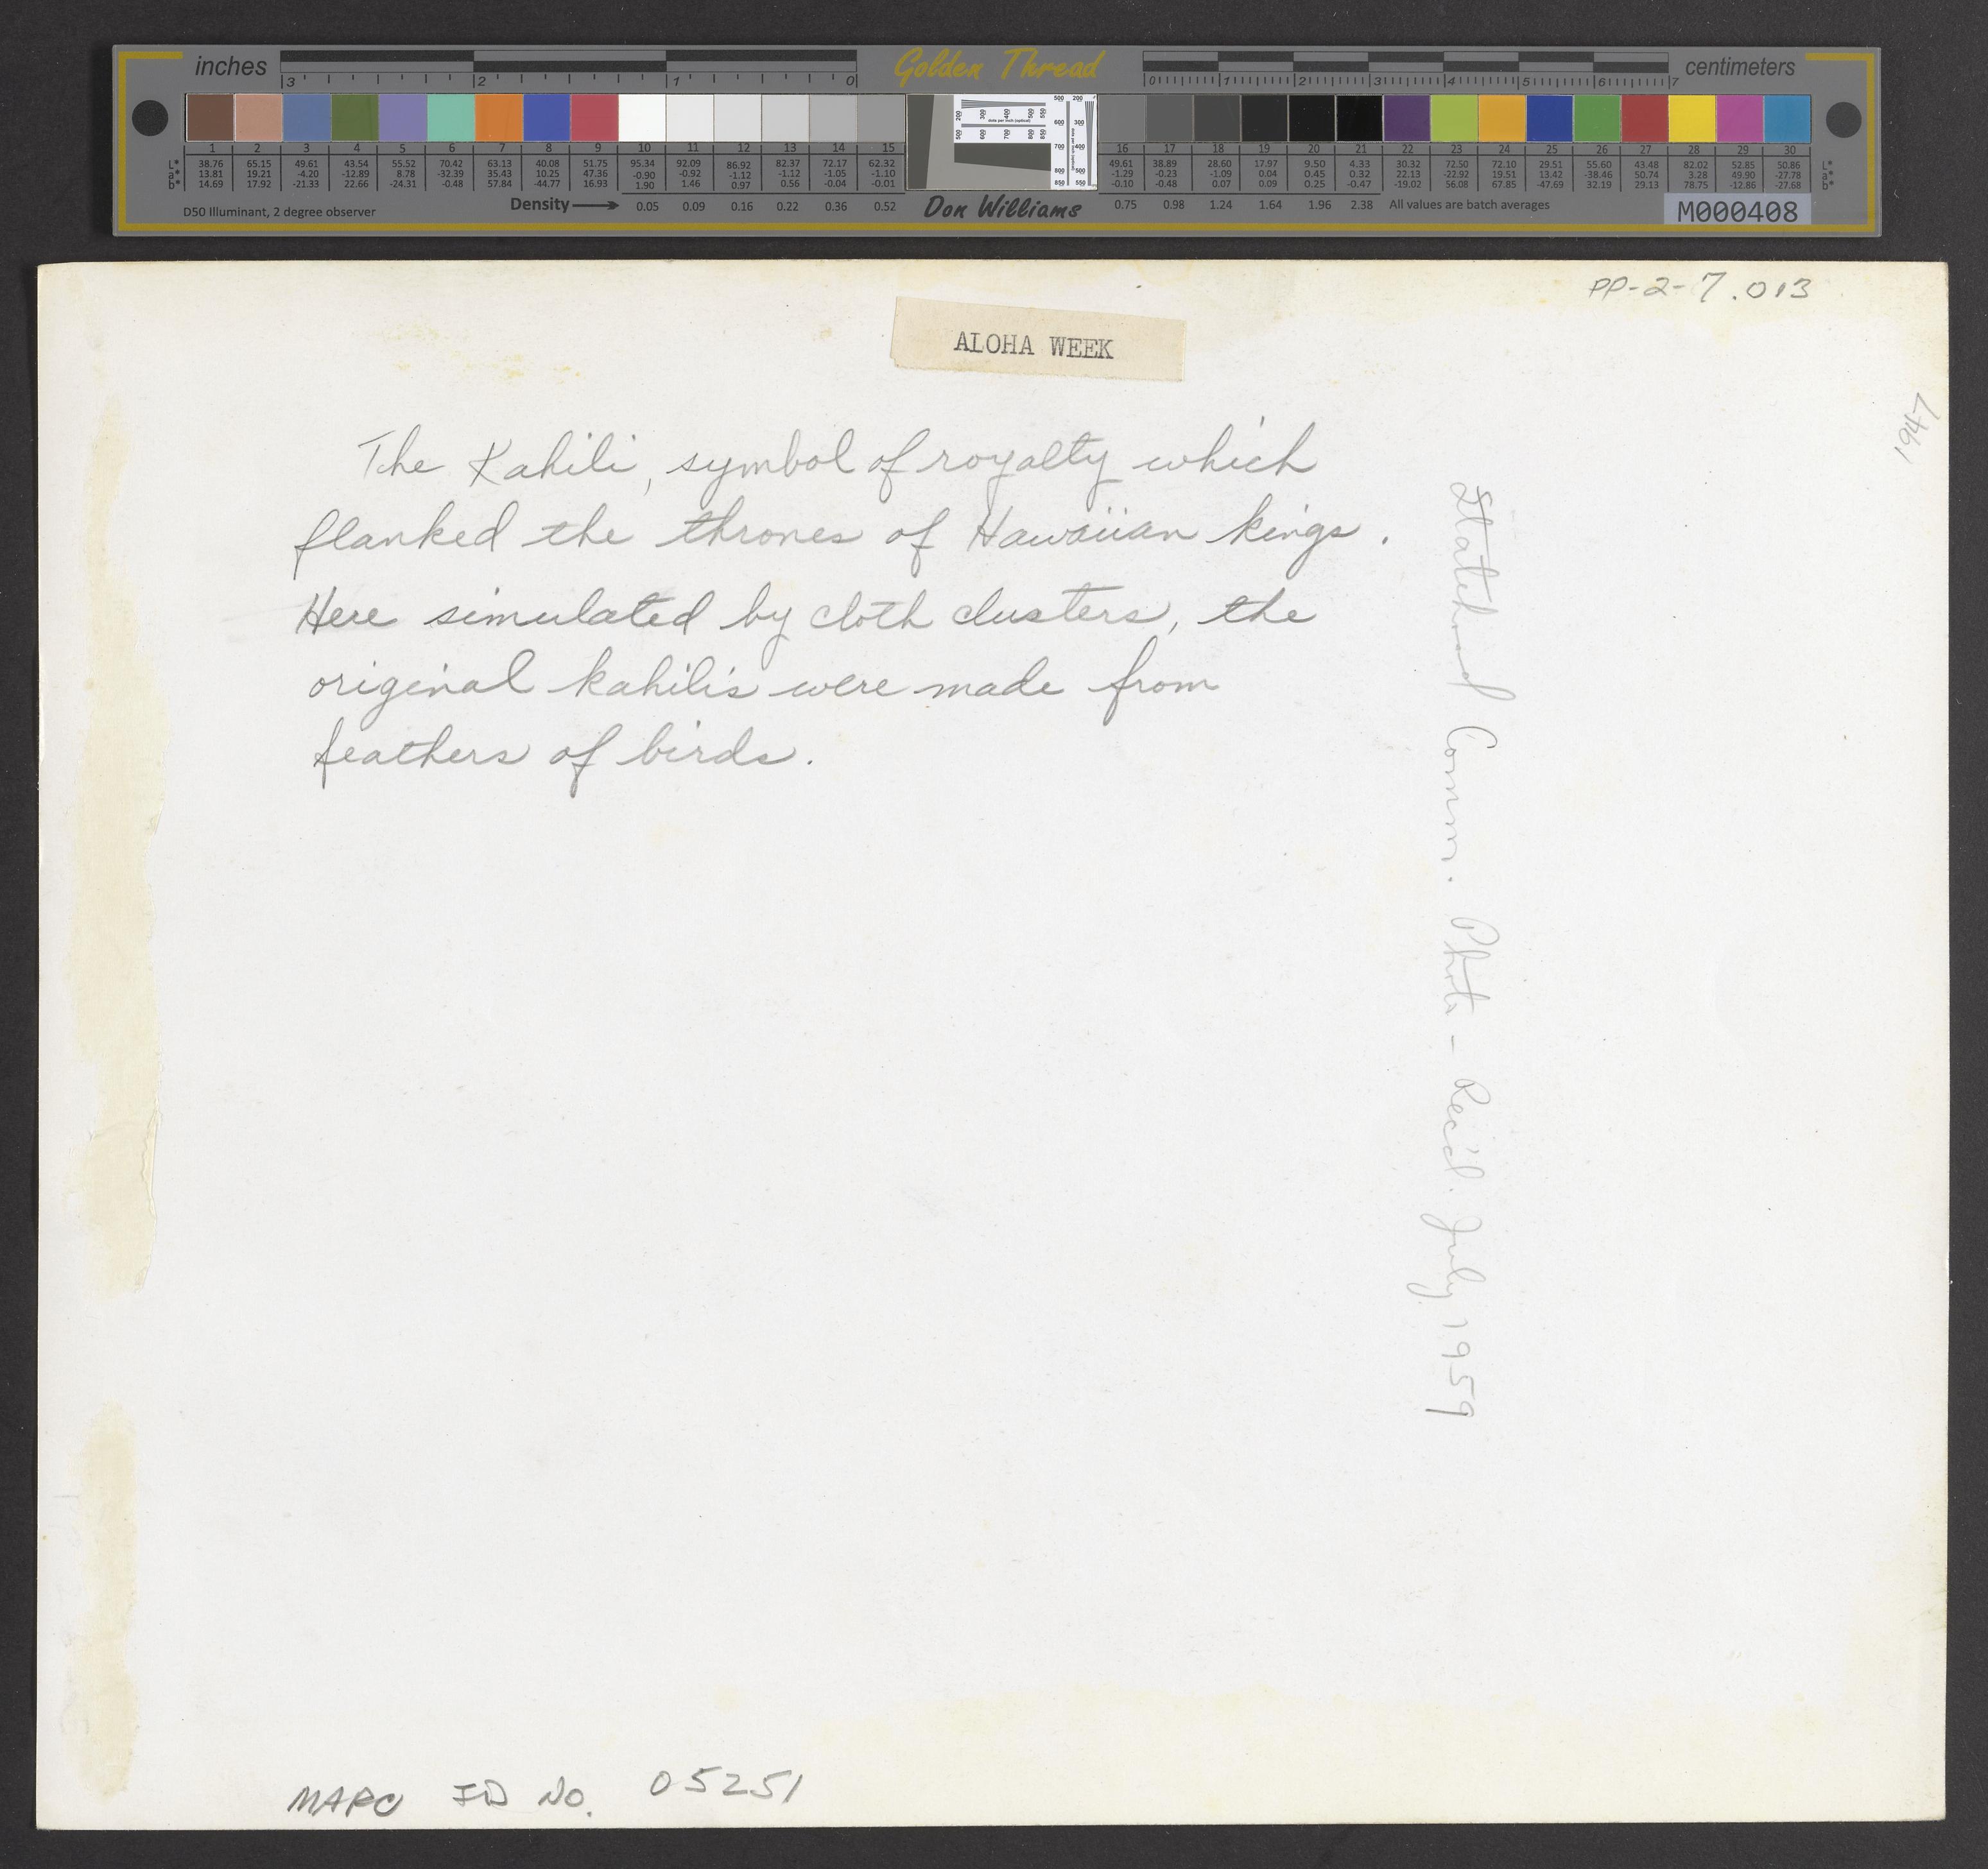 inches
3 2 1 0
Golden Thread
0 1 2 3 4 5 6 7
centimeters
1 2 3 4 5 6 7 8 9 10 11 12 13 14 15
L* 38.76 65.15 49.61 43.54 55.52 70.42 63.13 40.08 51.75 95.34 92.09 86.92 82.37 72.17 62.32
a* 13.81 19.21 -4.20 -12.89 8.78 -32.39 35.43 10.25 47.36 -0.90 -0.92 -1.12 -1.12 -1.05 -1.10
b* 14.69 17.92 -21.33 22.66 -24.31 -0.48 57.84 -44.77 16.93 1.90 1.46 0.97 0.56 -0.04 -0.01
16 17 18 19 20 21 22 23 24 25 26 27 28 29 30
49.61 38.89 28.60 17.97 9.50 4.33 30.32 72.50 72.10 29.51 55.60 43.48 82.02 52.85 50.86 L*
-1.29 -0.23 -1.09 0.04 0.45 0.32 22.13 -22.92 19.51 13.42 -38.46 50.74 3.28 49.90 -27.78 a*
-0.10 -0.48 0.07 0.09 0.25 -0.47 -19.02 56.08 67.85 -47.69 32.19 29.13 78.75 -12.86 -27.68 b*
D50 Illuminant, 2 degree observer
Density 0.05 0.09 0.16 0.22 0.36 0.52
Don Williams
0.75 0.98 1.24 1.64 1.96 2.38
All values are batch averages
M000408
PP-2-7.013
ALOHA WEEK
1947
The Kahili, symbol of royalty which
flanked the thrones of Hawaiian kings.
Here simulated by cloth clusters, the
original kahilis were made from
feathers of birds.
Statehood Comm. Photo - Rec'd. July 1959
MARC ID No. 05251